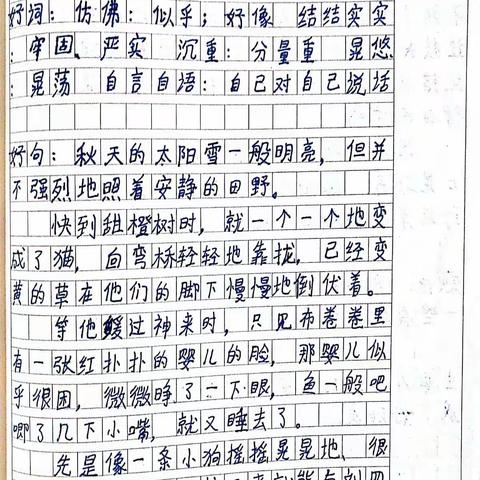 好词：仿佛：似乎；好像 结结实实
：牢固、严实 沉重：分量重 晃悠
：晃荡 自言自语：自己对自己说话
好句：秋天的太阳雪一般明亮，但并
不强烈地照着安静的田野。
快到甜橙树时，就一个一个地变
成了猫，向弯桥轻轻地靠拢，已经变
黄的草在他们的脚下慢慢地倒伏着。
等他缓过神来时，只见布卷卷里
有一张红扑扑的婴儿的脸，那婴儿似
乎很困，微微睁了一下眼，鱼一般吧
唧了几下小嘴，就又睡去了。
先是像一条小狗摇摇晃晃地、很